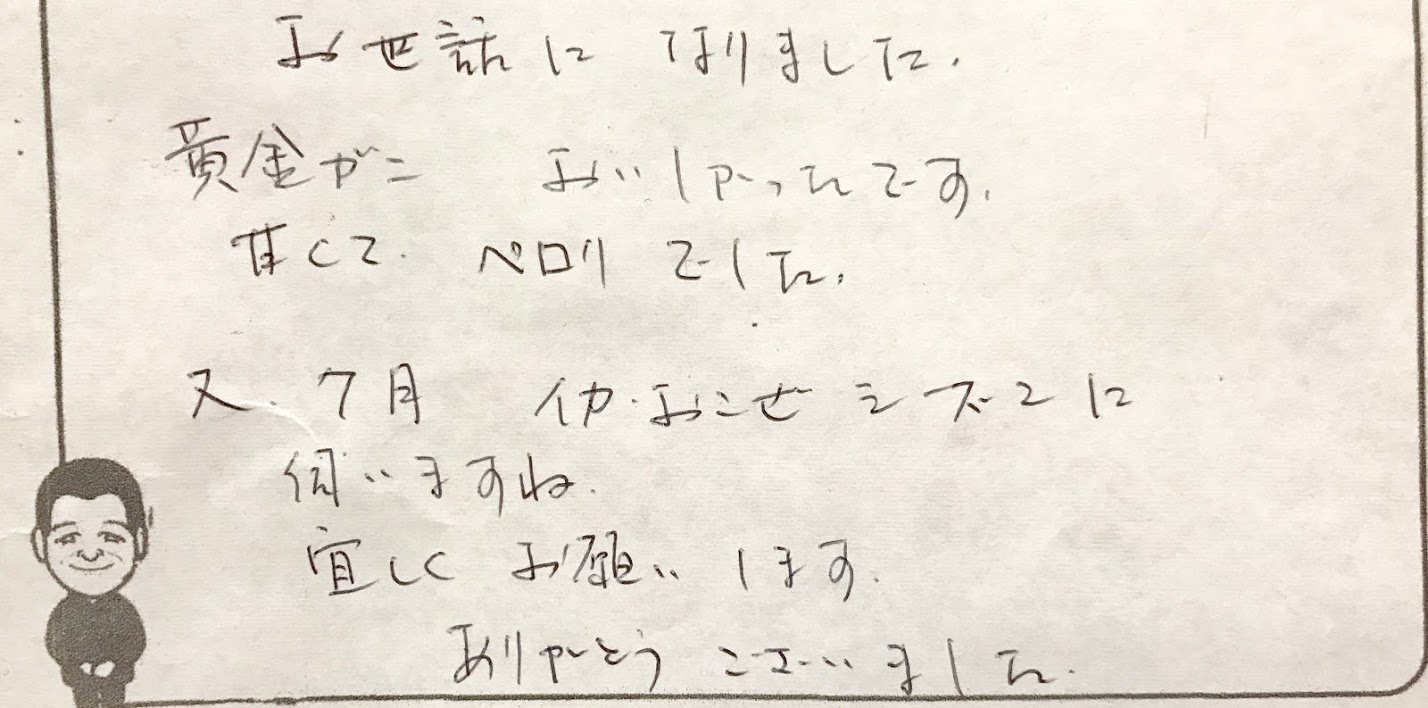 お世話に なりました.
黄金がに おいしかったです.
甘くて. ペロリ でした.
又. 7月 イカ・おこぜ シーズンに
伺いますね.
宜しく お願いします.
ありがとう ございました.